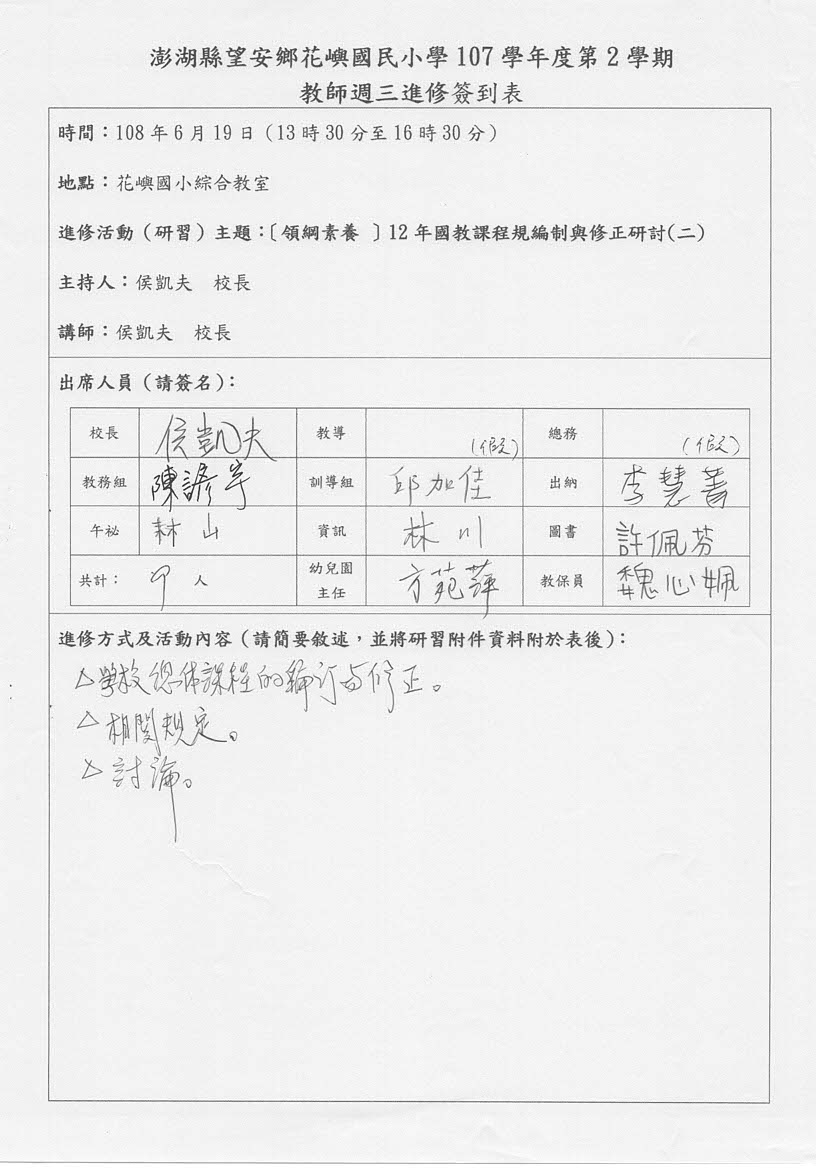 澎湖縣望安鄉花嶼國民小學 107 學年度第 2 學期
教師週三進修簽到表
時間：108 年 6 月 19 日（13 時 30 分至 16 時 30 分）
地點：花嶼國小綜合教室
進修活動（研習）主題：〔領綱素養 〕12 年國教課程規編制與修正研討(二)
主持人：侯凱夫 校長
講師：侯凱夫 校長
出席人員（請簽名）：
校長 侯凱夫 教導 （假） 總務 （假）
教務組 陳諺宇 訓導組 邱加佳 出納 李慧菁
午祕 林山 資訊 林川 圖書 許佩芬
共計： 9 人 幼兒園主任 方苑萍 教保員 魏心姵
進修方式及活動內容（請簡要敘述，並將研習附件資料附於表後）：
△學校總体課程的編訂与修正。
△相関規定。
△討論。